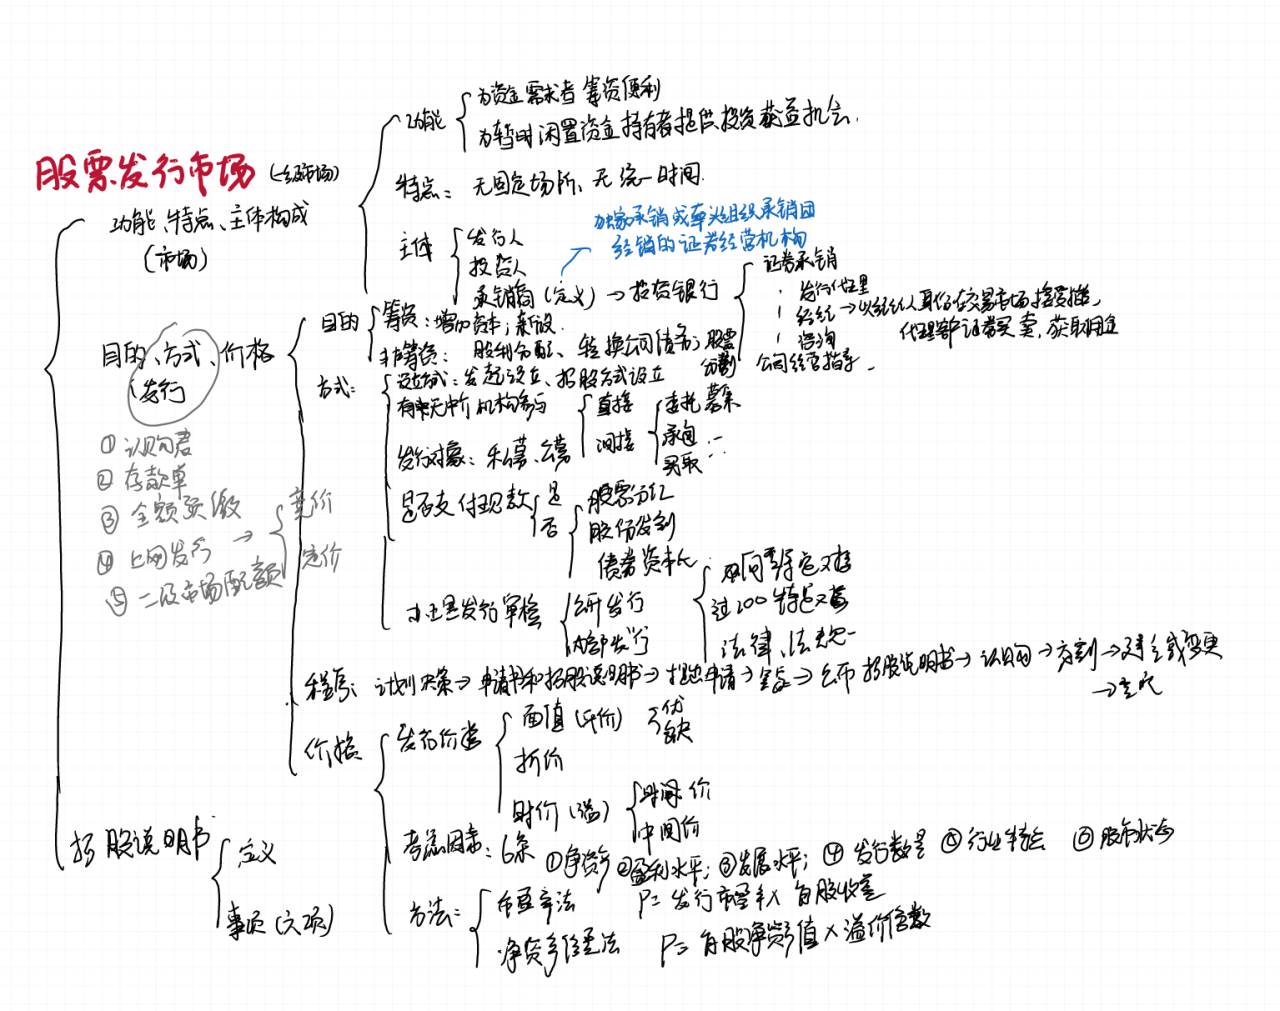 股票发行市场 (一级市场)
功能、特点、主体构成
(市场)
功能
为资金需求者筹资便利
为暂时闲置资金持有者提供投资获益机会.
特点: 无固定场所、无统一时间.
主体
发行人
投资人
承销商 (定义) → 投资银行
独家承销或牵头组织承销团
经销的证券经营机构
证券承销
发行代理
经纪 → 以经纪人身份在交易市场接受委托,
代理客户证券买卖, 获取佣金
咨询
公司经营指导
目的、方式、价格
发行
① 认购者
② 存款单
③ 全额预缴
④ 上网发行 →
竞价
定价
⑤ 二级市场配额
目的
筹资: 增加资本; 新设.
非筹资: 股利分配、转换公司债券; 股票
分割
方式:
设立方式: 发起设立、招股方式设立
有无中介机构参与
直接
间接
委托募集
承包
买取
发行对象: 私募、公募
是否支付现款
是
否
股票分红
股份分割
债券资本化
发行审核
公开发行
内部发行
不特定对象
过200特定对象
法律、法规
程序: 计划决策 → 申请书和招股说明书 → 提出申请 → → 公布招股说明书 → 认购 → 交割 → 建立或变更
→ 
价格
发行价类
面值 (平价)
优
缺
折价
时价 (溢)
时价
中间价
考虑因素: 6条 ① 净资产 ② 盈利水平; ③ 发展水平; ④ 发行数量 ⑤ 行业特点 ⑥ 股市状态
方法:
市盈率法 P = 发行市盈率 × 每股收益
净资产倍率法 P = 每股净资产值 × 溢价倍数
招股说明书
定义
事项 (六项)